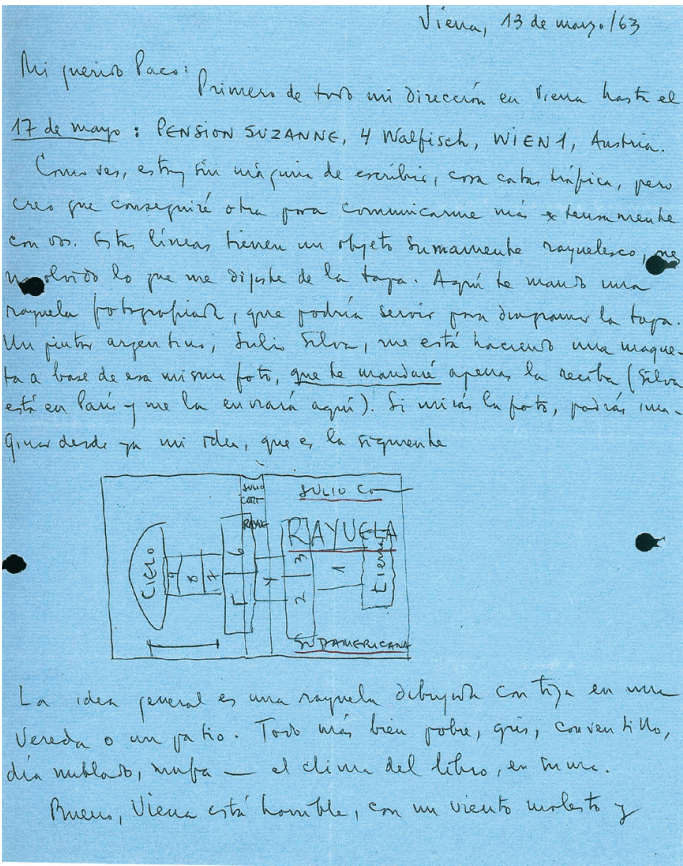 Viena, 13 de marzo/63
Mi querido Paco:
Primero de todo mi dirección en Viena hasta el
17 de mayo : PENSION SUZANNE, 4 Walfisch, WIEN 1, Austria.
Como ves, estoy sin máquina de escribir, cosa catastrófica, pero
creo que conseguiré otra para comunicarme más extensamente
con vos. Estas líneas tienen un objeto sumamente rayuelesco, pues
no olvido lo que me dijiste de la tapa. Aquí te mando una
rayuela fotografiada, que podría servir para diagramar la tapa.
Un pintor argentino, Julio Silva, me está haciendo una maque-
ta a base de esa misma foto, que te mandaré apenas la reciba (Silva
está en París y me la enviará aquí). Si mirás la foto, podrás ima-
ginar desde ya mi idea, que es la siguiente
JULIO
CORT
RAYUE
JULIO Co
RAYUELA
CIELO
9 8 7 6 5 4 3 2 1
tierra
SUDAMERICANA
La idea general es una rayuela dibujada con tiza en una
vereda o un patio. Todo más bien pobre, gris, conventillo,
día nublado, mufa — el clima del libro, en suma.
Bueno, Viena está horrible, con un viento molesto y